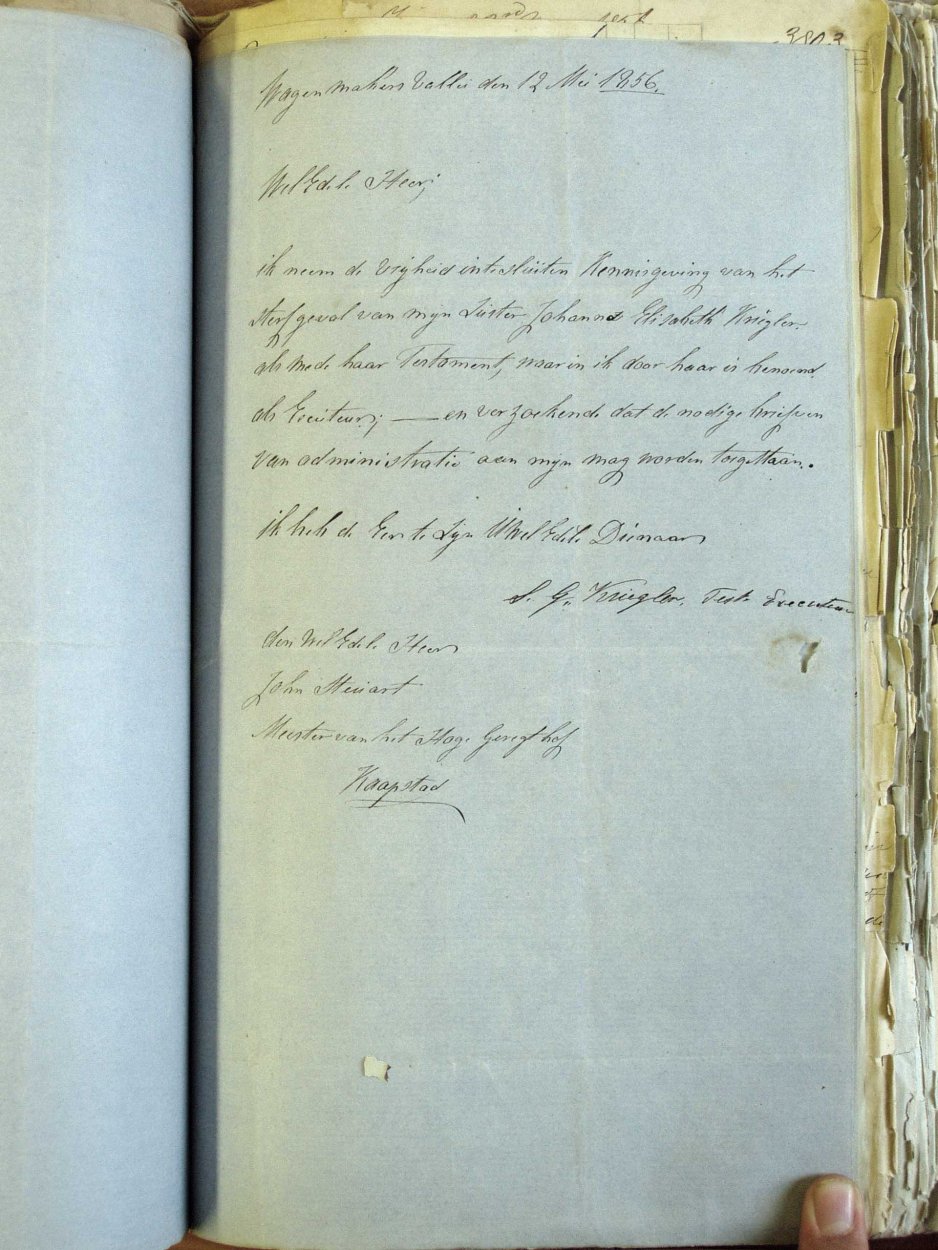 3803
Wagenmakers Vallei den 12 Mei 1856.
WelEdele Heer;
ik neem de Vrijheid intesluiten Kennisgeving van het
sterfgeval van mijn Zuster Johanna Elisabeth Kriegler.
als mede haar Testament, waar in ik door haar is benoemd
als Executeur; — en verzoekende dat de nodige brieven
van administratie aan mijn mag worden toegestaan.
ik heb de Eer te Zijn UWelEdele Dienaar
S. G. Kriegler. Test. Executeur
den WelEdele Heer
John Steuart
Meester van het Hoge Geregthof
Kaapstad